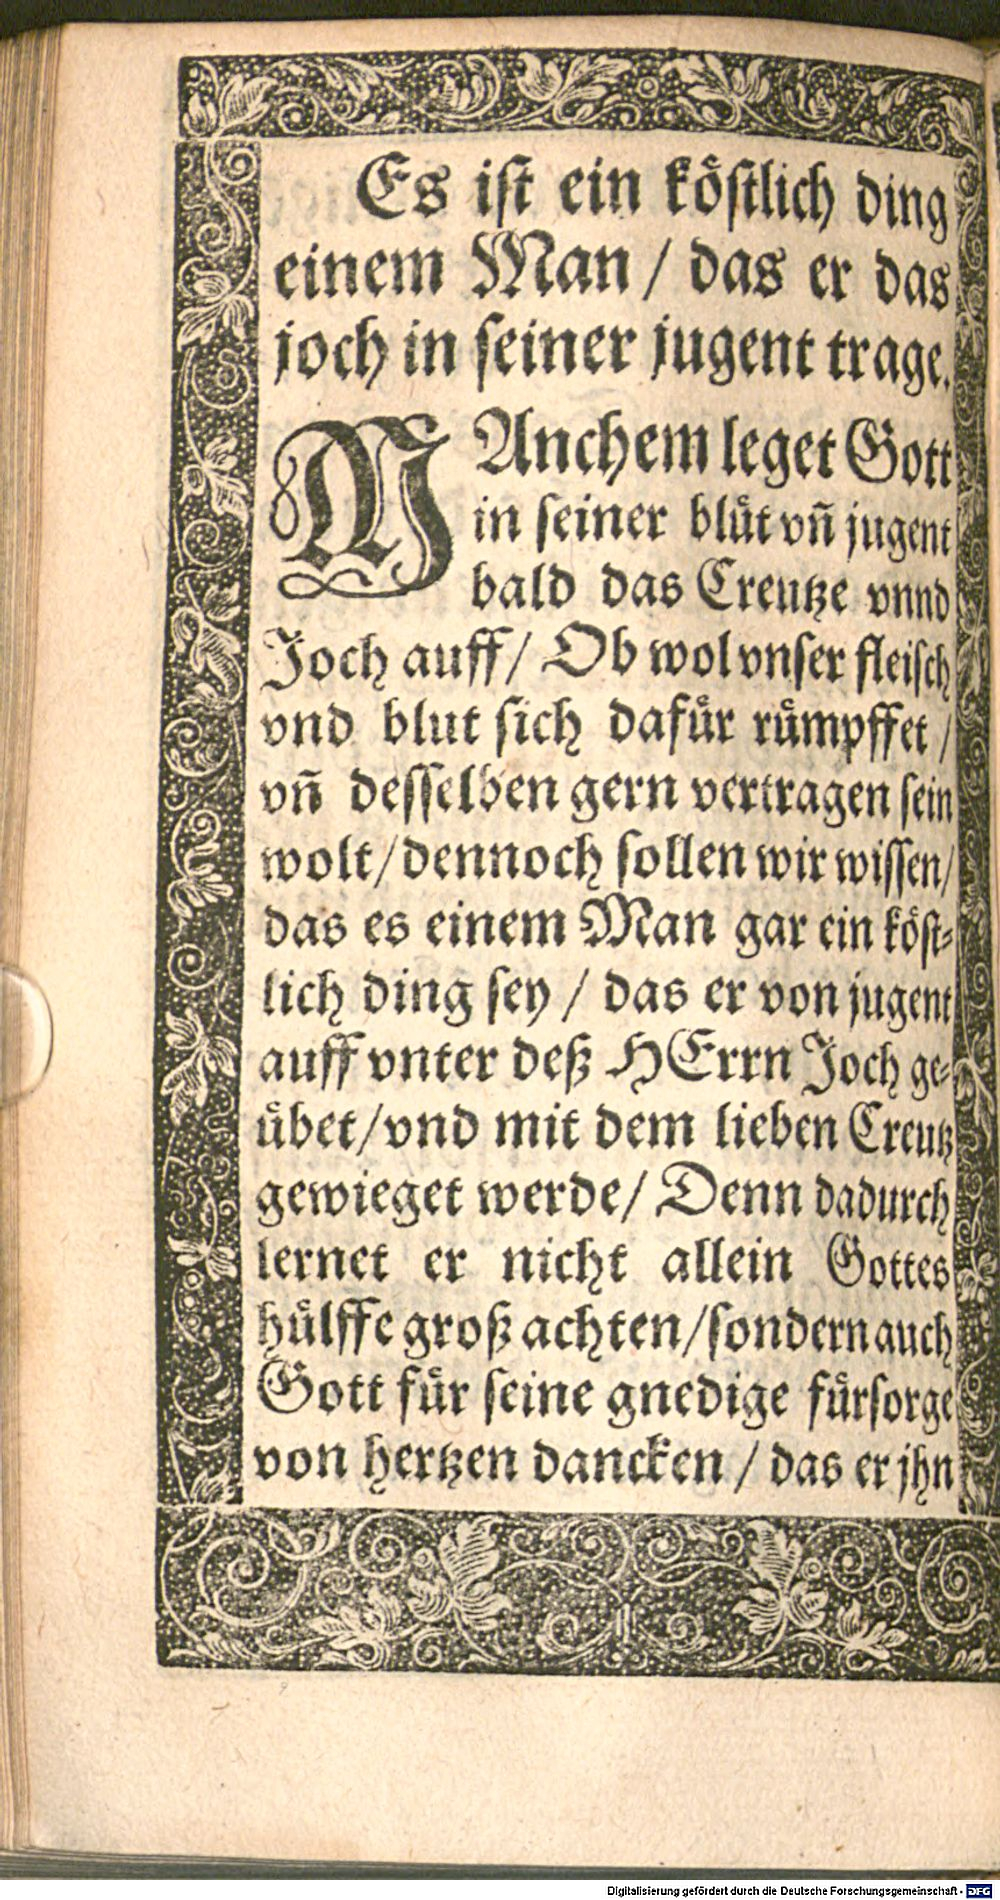 Es iſt ein köſtlich ding
einem Man / das er das
joch in ſeiner jugent trage.
MAnchem leget Gott
in ſeiner blüt vn̄ jugent
bald das Creutze vnnd
Joch auff / Ob wol vnſer fleiſch
vnd blut ſich dafür rümpffet /
vn̄ deſſelben gern vertragen ſein
wolt / dennoch ſollen wir wiſſen /
das es einem Man gar ein köſt⸗
lich ding ſey / das er von jugent
auff vnter deß HErrn Joch ge⸗
übet / vnd mit dem lieben Creutz
gewieget werde / Denn dadurch
lernet er nicht allein Gottes
hülffe groß achten / ſondern auch
Gott für ſeine gnedige fürſorge
von hertzen dancken / das er jhn
Digitalisierung gefördert durch die Deutsche Forschungsgemeinschaft - DFG